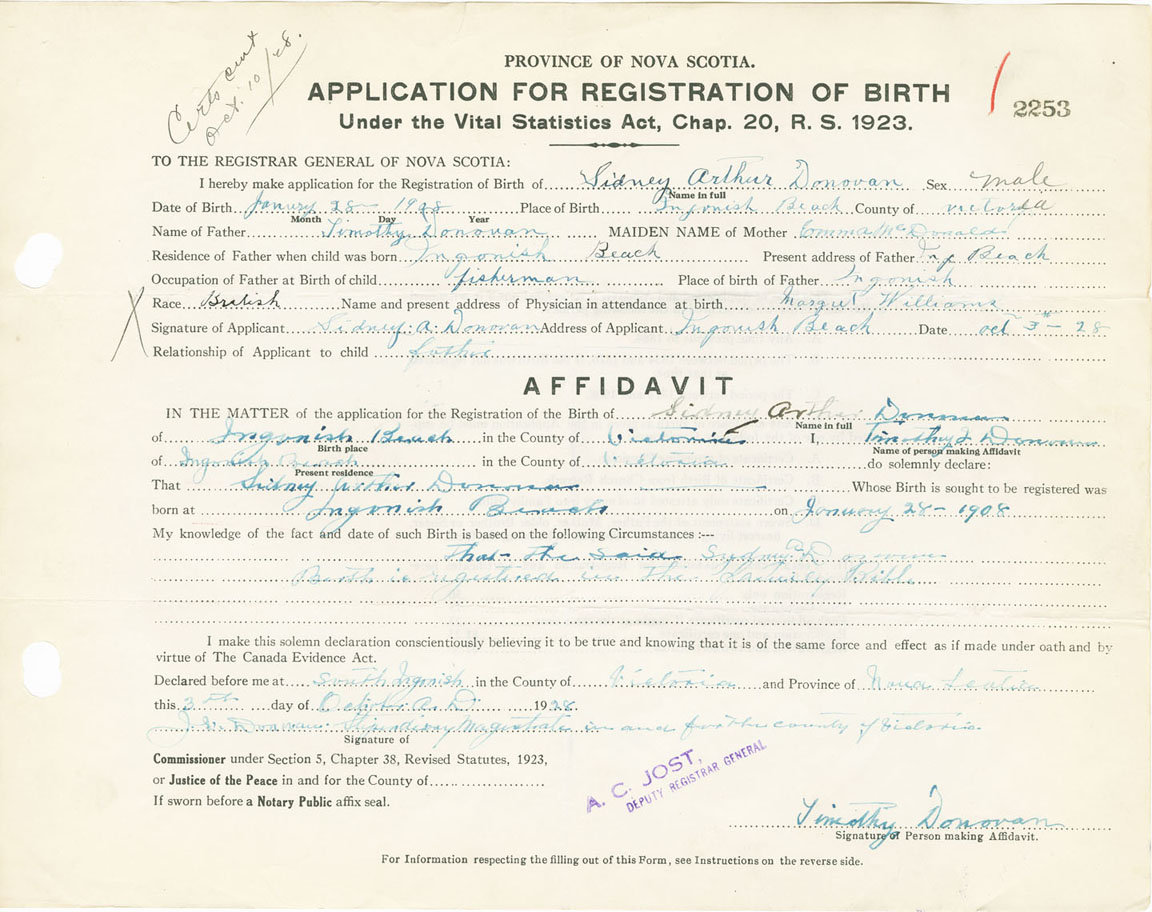 Certs sent
Oct. 10/28.
PROVINCE OF NOVA SCOTIA.
APPLICATION FOR REGISTRATION OF BIRTH
2253
Under the Vital Statistics Act, Chap. 20, R. S. 1923.
TO THE REGISTRAR GENERAL OF NOVA SCOTIA:
I hereby make application for the Registration of Birth of Sidney Arthur Donovan Sex male
Name in full
Date of Birth January 28 - 1908 Place of Birth Ingonish Beach County of victoria
Month Day Year
Name of Father Timothy Donovan MAIDEN NAME of Mother Emma McDonald
Residence of Father when child was born Ingonish Beach Present address of Father Ing Beach
Occupation of Father at Birth of child fisherman Place of birth of Father Ingonish
Race British Name and present address of Physician in attendance at birth Margret Williams
Signature of Applicant Sidney. A. Donovan Address of Applicant Ingonish Beach Date oct 3rd - 28
Relationship of Applicant to child
AFFIDAVIT
IN THE MATTER of the application for the Registration of the Birth of Sidney Arthur Donovan
Name in full
of Ingonish Beach in the County of Victoria I, Timothy J Donovan
Birth place Name of person making Affidavit
of Ingonish Beach in the County of Victoria do solemnly declare:
Present residence
That Sidney Arthur Donovan Whose Birth is sought to be registered was
born at Ingonish Beach on January 28 - 1908
My knowledge of the fact and date of such Birth is based on the following Circumstances :---
that the said Sydney A Donovan
Birth is registered in the family Bible
I make this solemn declaration conscientiously believing it to be true and knowing that it is of the same force and effect as if made under oath and by
virtue of The Canada Evidence Act.
Declared before me at South Ingonish in the County of Victoria and Province of Nova Scotia
this 3rd day of October A. D. 1928.
Donovan Stipendiary Magistrate in and for the county of Victoria
Signature of
Commissioner under Section 5, Chapter 38, Revised Statutes, 1923,
or Justice of the Peace in and for the County of
If sworn before a Notary Public affix seal.
A. C. JOST,
DEPUTY REGISTRAR GENERAL
Timothy Donovan
Signature of Person making Affidavit.
For Information respecting the filling out of this Form, see Instructions on the reverse side.